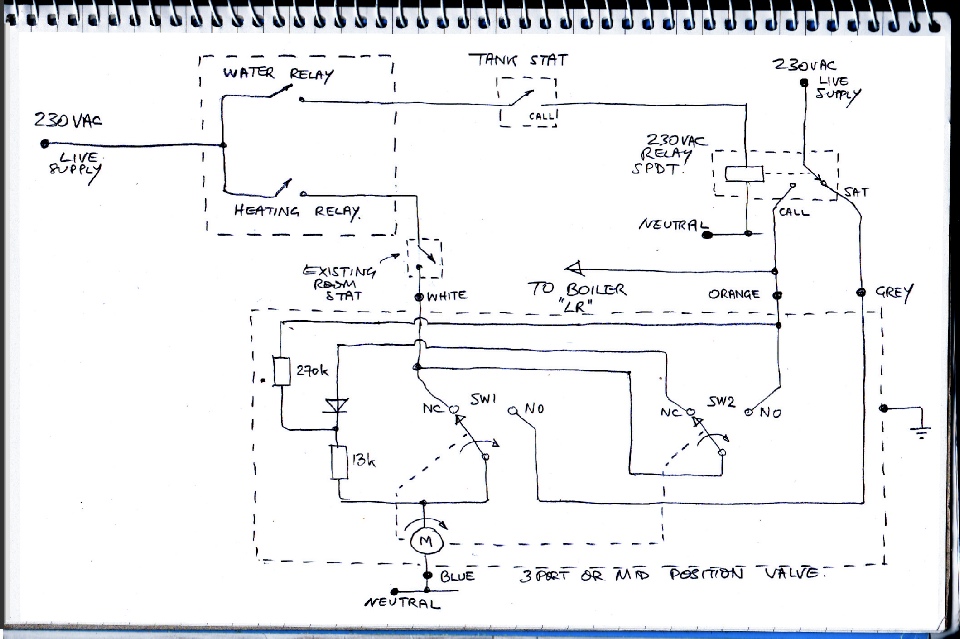 WATER RELAY
TANK STAT
230VAC
LIVE
SUPPLY
CALL
230 VAC
LIVE
SUPPLY
230VAC
RELAY
SPDT.
SAT
CALL
HEATING RELAY.
NEUTRAL
EXISTING
ROOM
STAT
TO BOILER
"LR"
WHITE
ORANGE
GREY
270k
NC
SW1
NO
NC
SW2
NO
13k
M
BLUE
3 PORT OR MID POSITION VALVE.
NEUTRAL